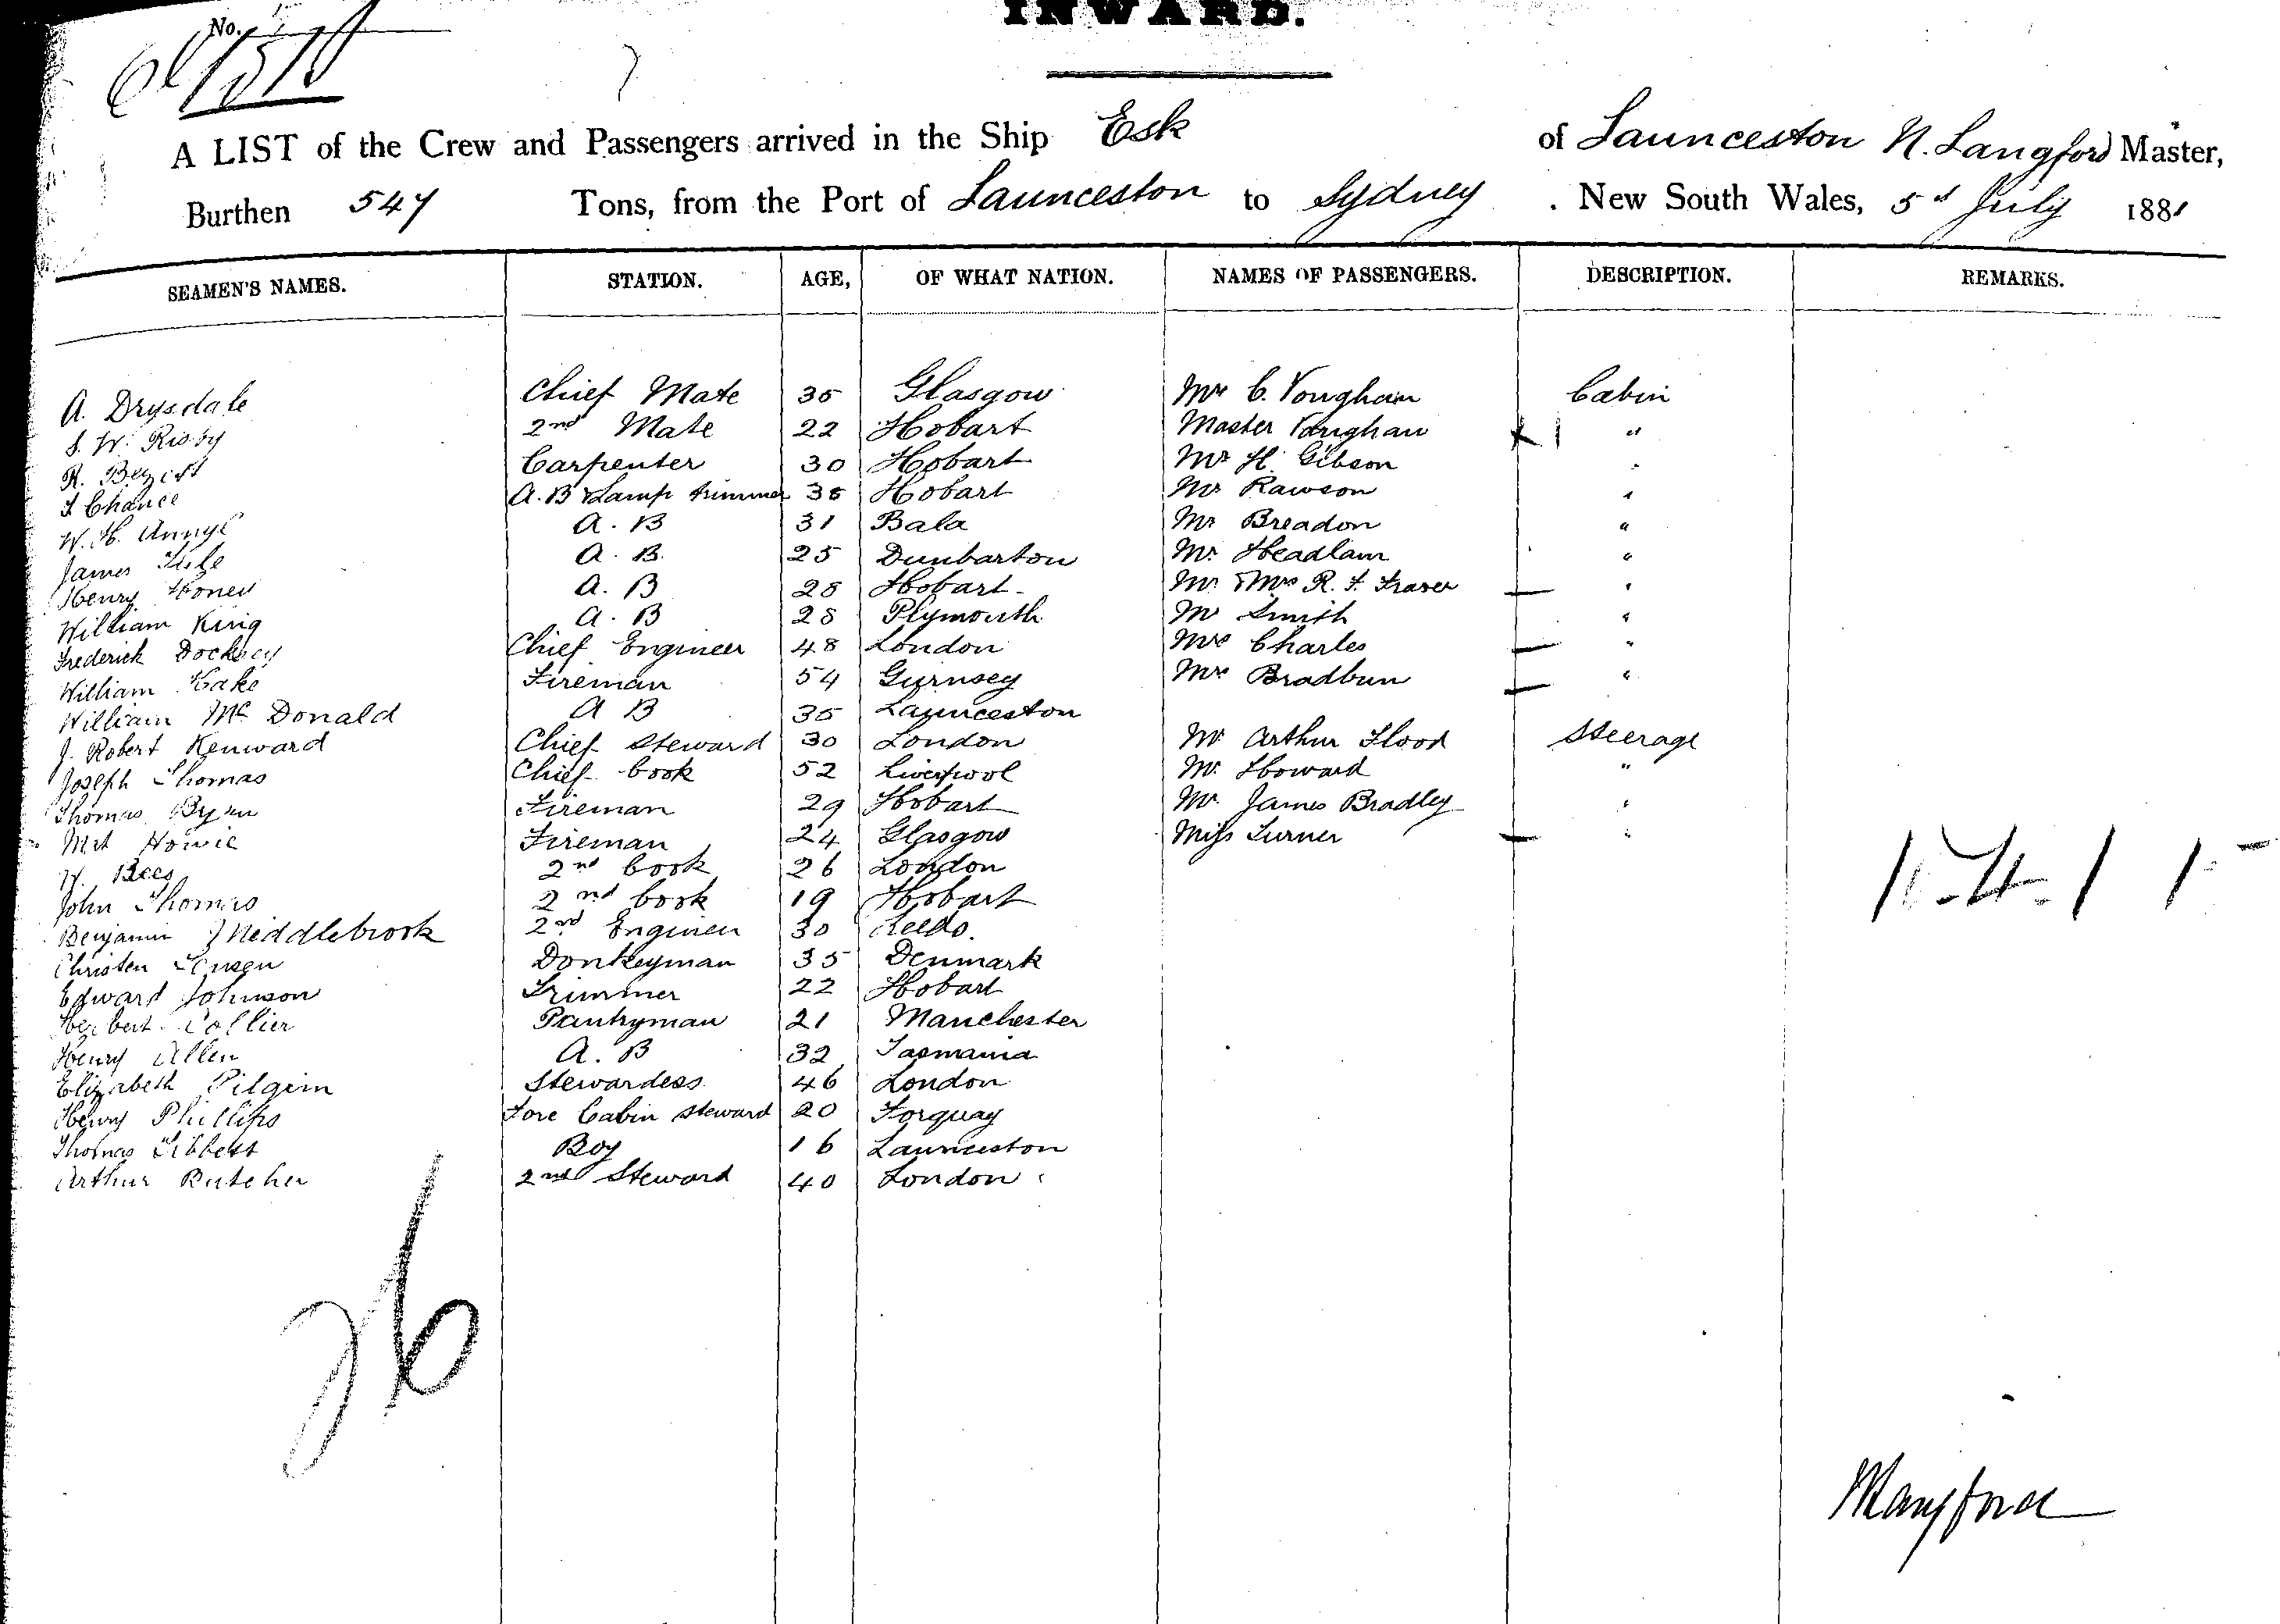 INWARD.
No.
A LIST of the Crew and Passengers arrived in the Ship Esk of Launceston N. Langford Master,
Burthen 547 Tons, from the Port of Launceston to Sydney . New South Wales, 5th July 1881
SEAMEN'S NAMES. STATION. AGE, OF WHAT NATION. NAMES OF PASSENGERS. DESCRIPTION. REMARKS.
A. Drysdale Chief Mate 35 Glasgow Mrs C. Vaughan Cabin
S. W. Risby 2nd Mate 22 Hobart Master Vaughan "
R. Carpenter 30 Hobart Mr H. Gibson "
Chance A.B Lamp trimmer 36 Hobart Mr Rawson "
W. H. A. B 31 Bala Mr Breadon "
James A. B. 25 Dunbarton Mr Headlam "
Henry Honey A. B 28 Hobart Mr & Mrs R. F. Fraser "
William King A. B 28 Plymouth Mr Smith "
Frederick Chief Engineer 48 London Mrs Charles "
William Cake Fireman 54 Gurnsey Mrs Bradburn "
William McDonald A B 35 Launceston
J. Robert Kenward Chief Steward 30 London Mr Arthur Flood Steerage
Joseph Thomas Chief Cook 52 Liverpool Mr Howard "
Thomas Fireman 29 Hobart Mr James Bradley "
Howie Fireman 24 Glasgow Miss Turner "
W. Rees 2nd Cook 26 London
John Thomas 2nd Cook 19 Hobart
Benjamin Middlebrook 2nd Engineer 30 Leeds.
Christen Jensen Donkeyman 35 Denmark
Edward Johnson Trimmer 22 Hobart
Herbert Collier Pantryman 21 Manchester
Henry Allen A. B 32 Tasmania
Elizabeth Pilgrim Stewardess 46 London
Henry Phillips Fore Cabin Steward 20 Torquay
Thomas Tibbett Boy 16 Launceston
Arthur Butcher 2nd Steward 40 London
26